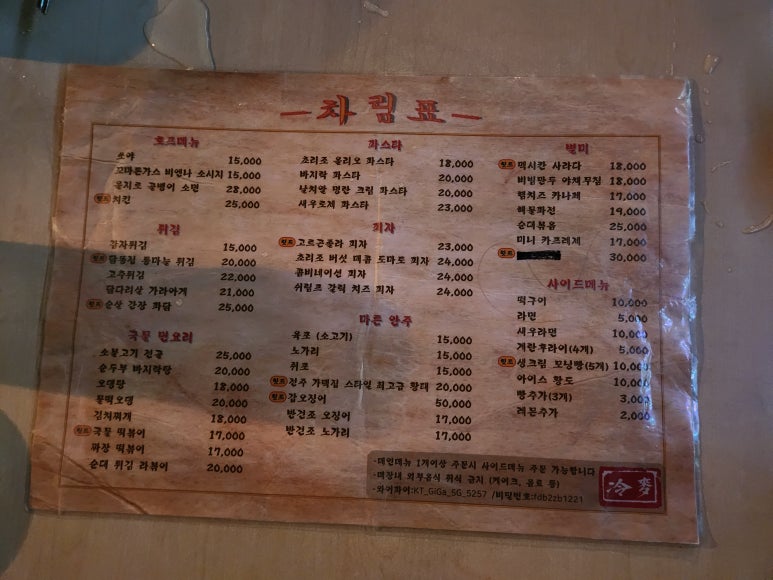 차림표
호프메뉴
쏘야 15,000
꼬마돈가스 비엔나 소시지 15,000
골지로 골뱅이 소면 28,000
치킨 25,000
튀김
감자튀김 15,000
통마늘 튀김 20,000
고추튀김 22,000
닭다리살 가라아게 21,000
순살 간장 화닭 25,000
국물 면요리
소불고기 전골 25,000
순두부 바지락탕 20,000
오뎅탕 18,000
물떡오뎅 20,000
김치찌개 18,000
국물 떡볶이 17,000
짜장 떡볶이 17,000
순대 튀김 라볶이 20,000
파스타
초리조 올리오 파스타 18,000
바지락 파스타 20,000
날치알 명란 크림 파스타 20,000
새우로제 파스타 23,000
피자
고르곤졸라 피자 23,000
초리조 버섯 매콤 토마토 피자 24,000
콤비네이션 피자 24,000
쉬림프 갈릭 치즈 피자 24,000
마른 안주
육포 (소고기) 15,000
노가리 15,000
쥐포 15,000
전주 가맥집 스타일 최고급 황태 20,000
갑오징어 50,000
반건조 오징어 17,000
반건조 노가리 17,000
별미
멕시칸 사라다 18,000
비빔만두 야채무침 18,000
햄치즈 카나페 17,000
해물파전 19,000
순대볶음 25,000
미니 카프레제 17,000
30,000
사이드메뉴
떡구이 10,000
라면 5,000
새우라면 10,000
계란후라이(4개) 5,000
생크림 모닝빵(5개) 10,000
아이스 황도 10,000
빵추가(3개) 3,000
레몬추가 2,000
-메인메뉴 1개이상 주문시 사이드메뉴 주문 가능합니다
-매장내 외부음식 취식 금지 (케이크, 음료 등)
-와이파이:KT_GiGa_5G_5257 /비밀번호:fdb2zb1221
冷麥